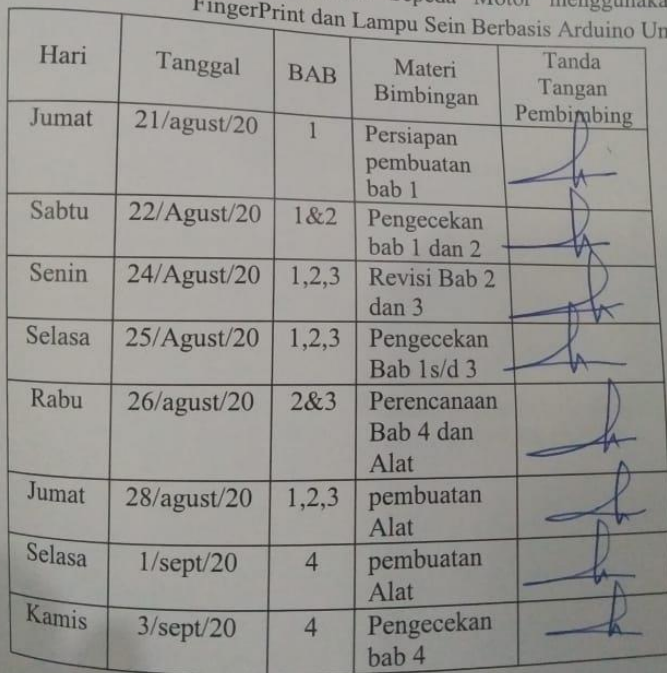 Motor menggunaka
FingerPrint dan Lampu Sein Berbasis Arduino Un
Hari Tanggal BAB Materi Bimbingan Tanda Tangan Pembimbing
Jumat 21/agust/20 1 Persiapan pembuatan bab 1
Sabtu 22/Agust/20 1&2 Pengecekan bab 1 dan 2
Senin 24/Agust/20 1,2,3 Revisi Bab 2 dan 3
Selasa 25/Agust/20 1,2,3 Pengecekan Bab 1s/d 3
Rabu 26/agust/20 2&3 Perencanaan Bab 4 dan Alat
Jumat 28/agust/20 1,2,3 pembuatan Alat
Selasa 1/sept/20 4 pembuatan Alat
Kamis 3/sept/20 4 Pengecekan bab 4